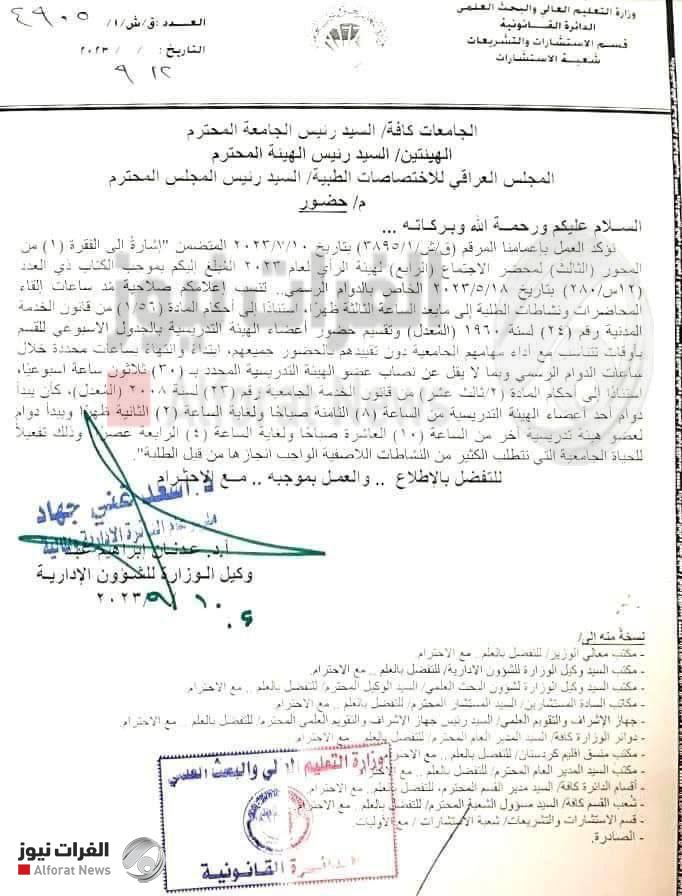 وزارة التعليم العالي والبحث العلمي
الدائرة القانونية
قسم الاستشارات والتشريعات
شعبة الاستشارات
العدد: ق/ش/١/ ٤٩٠٥
التاريخ: ١٢/ ٩/ ٢٠٢٣
الجامعات كافة/ السيد رئيس الجامعة المحترم
الهيئتين/ السيد رئيس الهيئة المحترم
المجلس العراقي للاختصاصات الطبية/ السيد رئيس المجلس المحترم
م/ حضور
السلام عليكم ورحمة الله وبركاته ...
نؤكد العمل بإعمامنا المرقم (ق/ش/٣٨٩٥/١) بتاريخ ٢٠٢٣/٧/١٠ المتضمن "إشارة الى الفقرة (١) من
المحور (الثالث) لمحضر الاجتماع (الرابع) لهيئة الرأي لعام ٢٠٢٣ المُبلغ إليكم بموجب الكتاب ذي العدد
(١٢س/٢٨٠) بتاريخ ٢٠٢٣/٥/١٨ الخاص بالدوام الرسمي.. ننسب إعلامكم صلاحية مَد ساعات القاء
المحاضرات ونشاطات الطلبة إلى مابعد الساعة الثالثة ظهرًا، استنادًا إلى أحكام المادة (١/٥٦) من قانون الخدمة
المدنية رقم (٢٤) لسنة ١٩٦٠ (المُعدل) وتقسيم حضور أعضاء الهيئة التدريسية بالجدول الاسبوعي للقسم
باوقات تتناسب مع أداء مهامهم الجامعية دون تقييدهم بالحضور جميعهم، ابتداءً وانتهاءً بساعات محددة خلال
ساعات الدوام الرسمي وبما لا يقل عن نصاب عضو الهيئة التدريسية المحدد بـ (٣٠) ثلاثون ساعة اسبوعيًا،
استنادًا إلى أحكام المادة (٢/ثالث عشر) من قانون الخدمة الجامعية رقم (٢٣) لسنة ٢٠٠٨ (المُعدل)، كأن يبدأ
دوام أحد أعضاء الهيئة التدريسية من الساعة (٨) الثامنة صباحًا ولغاية الساعة (٢) الثانية ظهرًا ويبدأ دوام
لعضو هيئة تدريسية آخر من الساعة (١٠) العاشرة صباحًا ولغاية الساعة (٤) الرابعة عصرًا، وذلك تفعيلاً
للحياة الجامعية التي تتطلب الكثير من النشاطات اللاصفية الواجب انجازها من قبل الطلبة".
للتفضل بالإطلاع .. والعمل بموجبه .. مع الاحترام
د. اسعد غني جهاد
مدير عام الدائرة الادارية والمالية
أ.د. عدنان ابراهيم
وكيل الوزارة للشؤون الإدارية
٢٠٢٣/٩/١٠
نسخةٌ منه إلى/
- مكتب معالي الوزير/ للتفضل بالعلم.. مع الاحترام.
- مكتب السيد وكيل الوزارة للشؤون الإدارية/ للتفضل بالعلم.. مع الاحترام.
- مكتب السيد وكيل الوزارة لشؤون البحث العلمي/ السيد الوكيل المحترم/ للتفضل بالعلم .. مع الاحترام.
- مكاتب السادة المستشارين/ السيد المستشار المحترم/ للتفضل بالعلم .. مع الاحترام.
- جهاز الإشراف والتقويم العلمي/ السيد رئيس جهاز الإشراف والتقويم العلمي المحترم/ للتفضل بالعلم .. مع الاحترام.
- دوائر الوزارة كافة/ السيد المدير العام المحترم/ للتفضل بالعلم .. مع الاحترام.
- مكتب منسق اقليم كردستان/ للتفضل بالعلم.. مع الاحترام.
- مكتب السيد المدير العام المحترم/ للتفضل بالعلم.. مع الاحترام
- أقسام الدائرة كافة/ السيد مدير القسم المحترم، للتفضل بالعلم.. مع الاحترام.
- شُعب القسم كافة/ السيد مسؤول الشعبة المحترم/ للتفضل بالعلم.. مع الاحترام
- قسم الاستشارات والتشريعات/ شعبة الاستشارات / مع الأوليات.
- الصادرة.
وزارة التعليم العالي والبحث العلمي
الدائرة القانونية
الفرات نيوز
Alforat News
الفرات نيوز
Alforat News